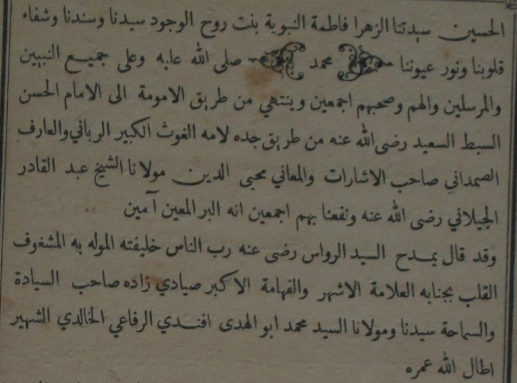 الحسين سيدتنا الزهرا فاطمة النبوية بنت روح الوجود سيدنا وسندنا وشفاء
قلوبنا ونور عيوننا محمد صلى الله عليه وعلى جميع النبيين
والمرسلين والهم وصحبهم اجمعين وينتهي من طريق الامومة الى الامام الحسن
السبط السعيد رضى الله عنه من طريق جده لامه الغوث الكبير الرباني والعارف
الصمداني صاحب الاشارات والمعاني محيى الدين مولانا الشيخ عبد القادر
الجيلاني رضى الله عنه ونفعنا بهم اجمعين انه البر المعين آمين
وقد قال يمدح السيد الرواس رضى عنه رب الناس خليفته الموله به المشغوف
القلب بجنابه العلامة الاشهر والفهامة الاكبر صيادي زاده صاحب السيادة
والسماحة سيدنا ومولانا السيد محمد ابو الهدى افندي الرفاعي الخالدي الشهير
اطال الله عمره